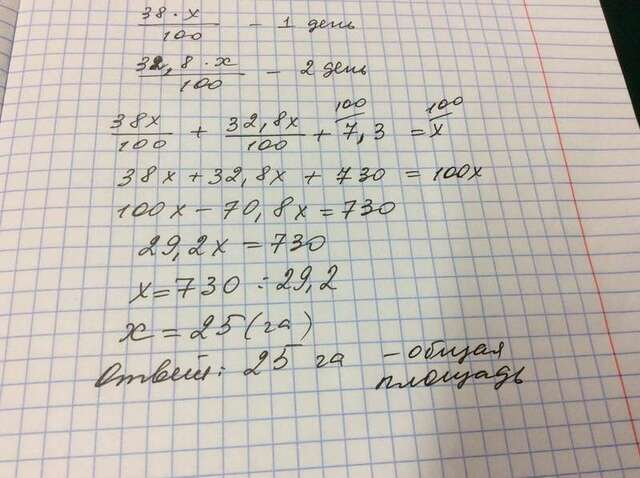 38 · x / 100 - 1 день
32,8 · x / 100 - 2 день
38x / 100 + 32,8x / 100 + 100/ 7,3 = 100/ x
38x + 32,8x + 730 = 100x
100x - 70,8x = 730
29,2x = 730
x = 730 : 29,2
x = 25 (га)
Ответ: 25 га - общая
площадь